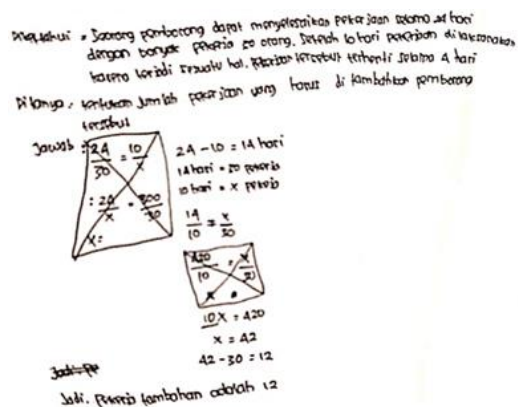 Diketahui : Seorang pemborong dapat menyelesaikan pekerjaan selama 24 hari
dengan banyak pekerja 30 orang. Setelah 10 hari pekerjaan dilaksanakan
karena terjadi sesuatu hal, pekerjaan tersebut terhenti selama 4 hari
Ditanya : tentukan jumlah pekerjaan yang harus di tambahkan pemborong
tersebut
Jawab : 24/30 = 10/x
24 - 10 = 14 hari
14 hari = 30 pekerja
10 hari = x pekerja
: 24/x = 300/30
x =
14/10 = x/30
420/10 = x/30
10x = 420
x = 42
42 - 30 = 12
Jadi. Pekerja tambahan adalah 12